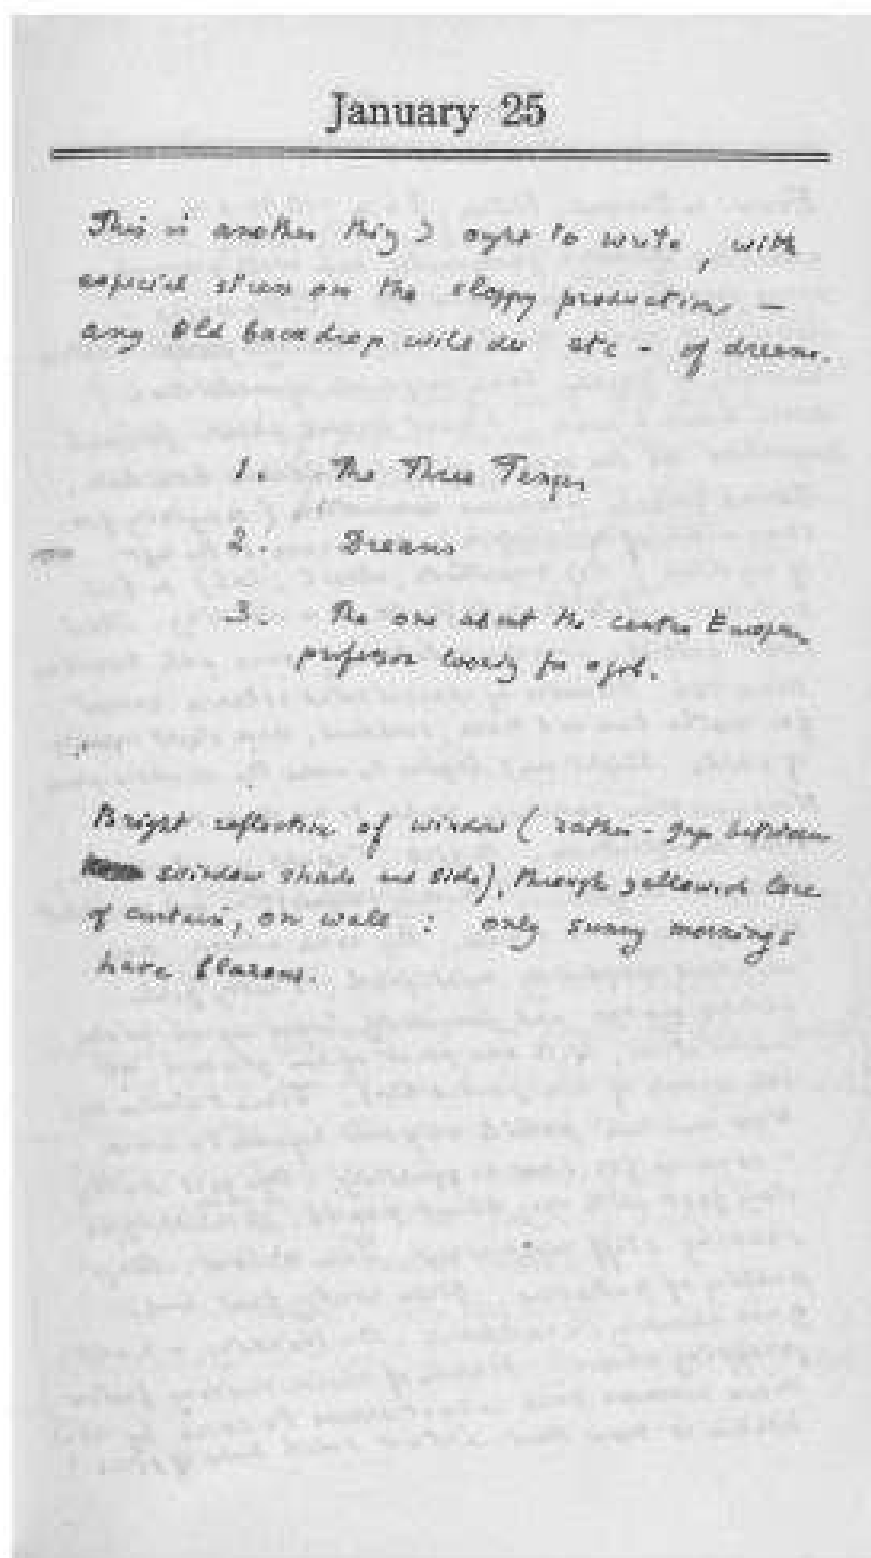 January 25
This is another thing I ought to write, with
especial stress on the sloppy production —
any old backdrop will do etc - of dreams.
1. The Three Tenses
2. Dreams
3. The one about the centre European
professor looking for a job.
Bright reflection of window (rather - gap between
window shade and side), through yellowish lace
of curtain, on wall : only sunny mornings
have blazons.